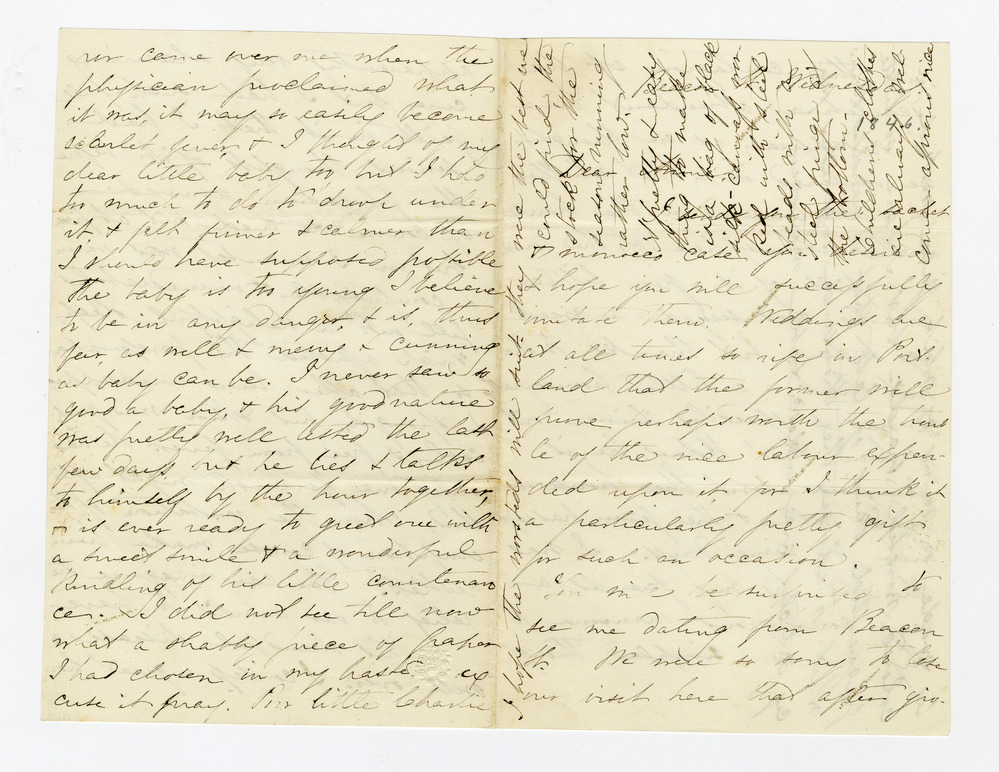 Beacon Wednesday
1846.
Dear
I send you the sachet
& morocco case you desire
& hope you will successfully
imitate them. Weddings are
at all times so rife in Port-
land that the former will
prove perhaps worth the troub
le of the nice labour expen-
ded upon it for I think it
a particularly pretty gift
for such an occasion.
You must be surprised to
see me dating from Beacon
St. We were so sorry to lose
our visit here that after giv-
ror came over me when the
physician proclaimed what
it was, it may so easily become
scarlet fever, & I thought of my
dear little baby too but I had
too much to do to droop under
it, & felt firmer & calmer than
I should have supposed possible
The baby is too young I believe
to be in any danger, & is, thus
far, as well & merry & cunning
as baby can be. I never saw so
good a baby, & his good nature
was pretty well tested the last
few days but he lies & talks
to himself by the hour together
& is ever ready to greet one with
a sweet smile & a wonderful
kindling of his little countenan
ce. I did not see till now
what a shabby piece of paper
I had chosen in my haste ex
cuse it pray. Poor little Charlie
I hope the worsteds will suit they
were the best we
could find, the
stock for the
season running
rather low.
A pretty & easy
thing to make
is a bag of black
silk canvas wor
ked with steel
beads with a
steel fringe at
the bottom.
Children's
are always wel
come & proud nice